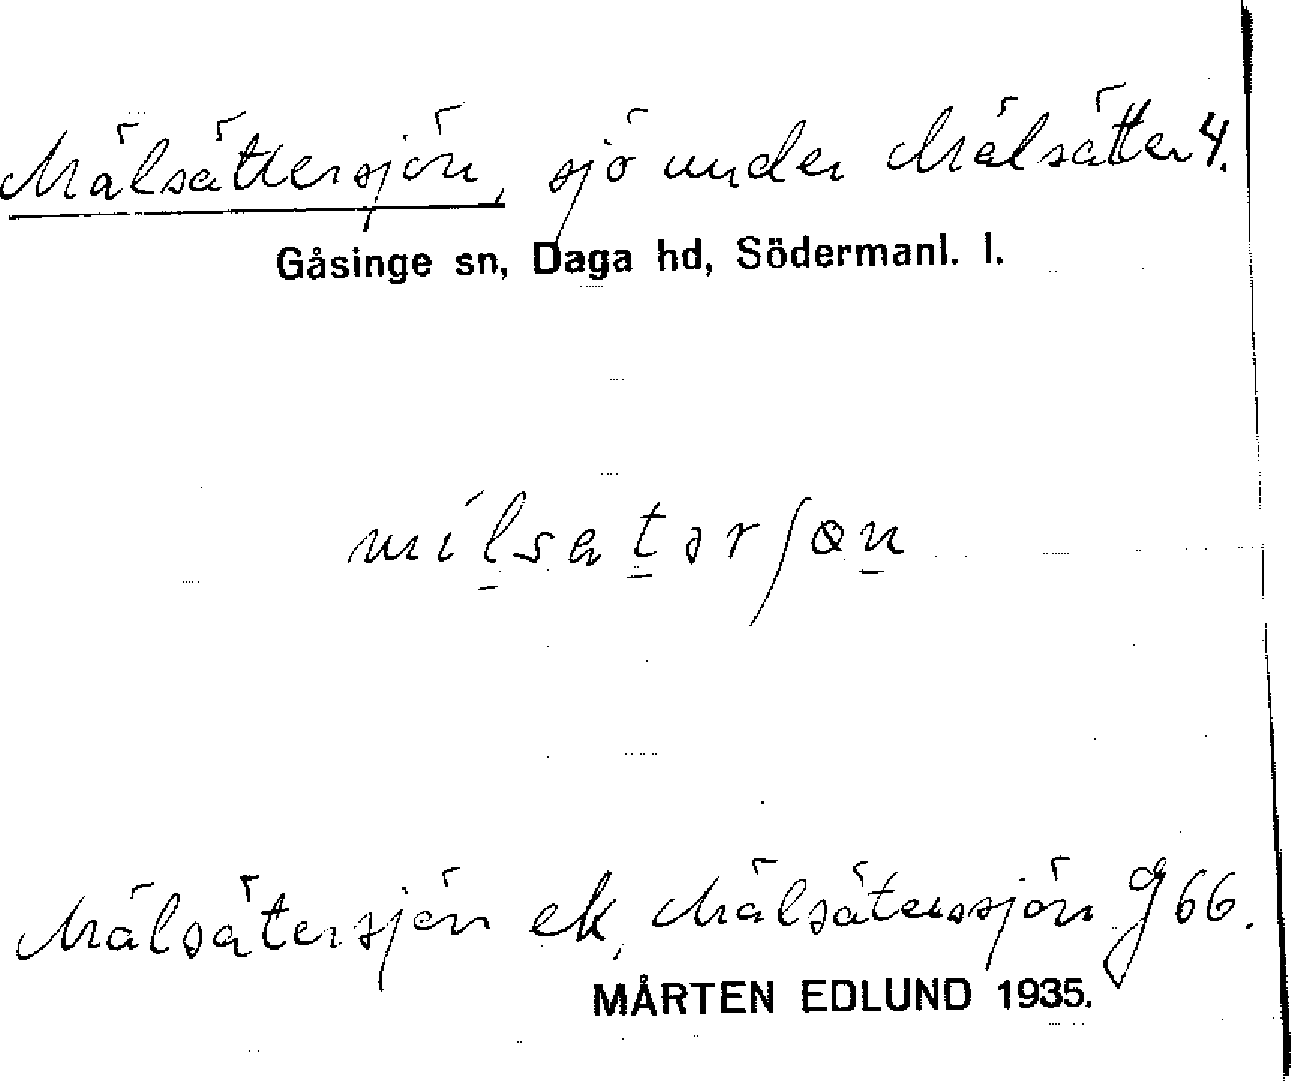 Mälsättersjön, sjö under Mälsätter 4.
Gåsinge sn, Daga hd, Södermanl. l.
mílsatərʃøn
Mälsätersjön ek, Mälsäterssjön G 66.
MÅRTEN EDLUND 1935.